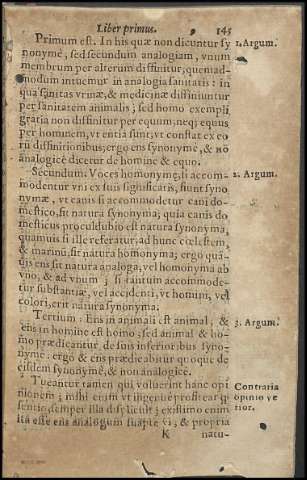 Liber primus. 145
Primum est. In his quæ non dicuntur sy
nonymè, sed secundum analogiam, vnum
membrum per alterum diffinitur, quemad-
modum intuemur in analogia sanitatis: in
qua sanitas vrinæ, & medicinæ diffiniuntur
per sanitatem animalis; sed homo exempli
gratia non diffinitur per equum, neq; equus
per hominem, vt entia sunt; vt constat ex eo
rū diffinitionibus; ergo ens synonymè, & nō
analogicè dicetur de homine & equo.
Secundum. Voces homonymę, si accom-
modentur vni ex suis significatis, fiunt syno
nymæ, vt canis si accommodetur cani do-
mestico, fit natura synonyma; quia canis do
mesticus proculdubio est natura synonyma,
quamuis si ille referatur, ad hunc cælestem,
& marinū, fit natura homonyma; ergo quā-
uis ens sit natura analoga, vel homonyma ab
vno, & ad vnum; si tantum accommode-
tur substantiæ, vel accidenti, vt homini, vel
colori, erit natura synonyma.
Tertium. Ens in animali est animal, &
ens in homine est homo: sed animal & ho-
mo prædicantur de suis inferioribus syno-
nymè: ergo & ens prædicabitur quoque de
eisdem synonymè, & non analogicè.
Tueantur tamen qui voluerint hanc opi
nionem; mihi enim vt ingenuè profitear
sentio, semper illa displicuit; existimo enim
ita esse ens analogum suapte vi, & propria
K natu-
1. Argum.
2. Argum.
3. Argum.
Contraria
opinio ve
rior.